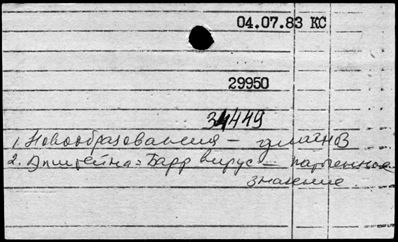 04.07.83 КС
29950
34449
1. Новообразования – диагноз
2. Эпштейна-Барр вирус – патогенное
значение